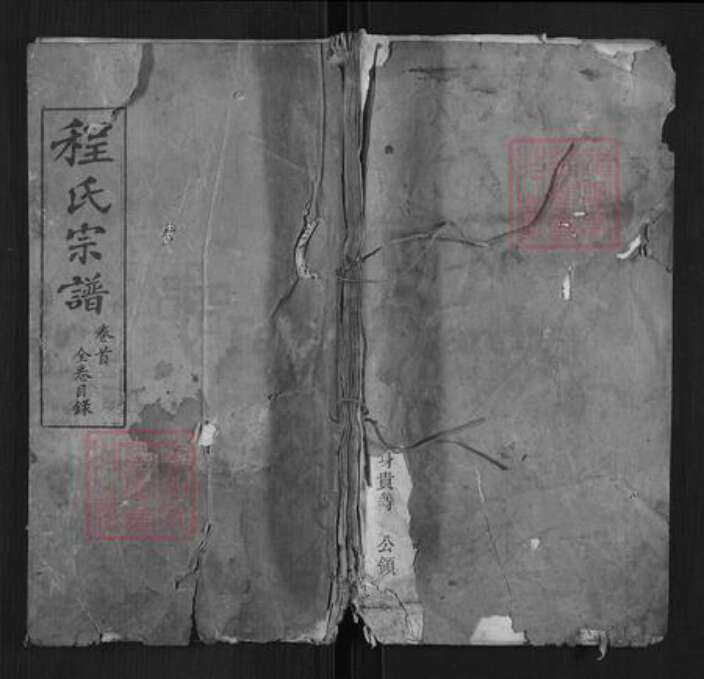 程氏宗譜
卷首
全卷目錄
身貴等 公領